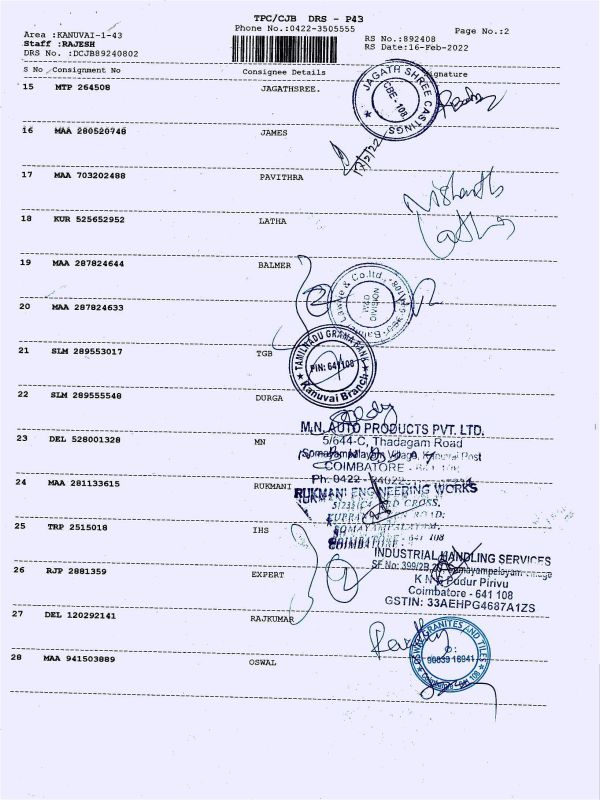 TPC/CJB DRS - P43
Phone No.:0422-3505555
Page No.:2
Area :KANUVAI-1-43
Staff :RAJESH
DRS No. :DCJB89240802
RS No.:892408
RS Date:16-Feb-2022
S No Consignment No Consignee Details Signature
15 MTP 264508 JAGATHSREE.
JAGATH SHREE CASTINGS
CBE - 108
16 MAA 280520746 JAMES
17/2/22
17 MAA 703202488 PAVITHRA
Nishanth
18 KUR 525652952 LATHA
Latha
19 MAA 287824644 BALMER
20 MAA 287824633
21 SLM 289553017 TGB
TAMILNADU GRAMA BANK
PIN: 641108
Kanuvai Branch
22 SLM 289555548 DURGA
M.N. AUTO PRODUCTS PVT. LTD.
5/644-C, Thadagam Road
23 DEL 528001328 MN
Somayampalayam Village, Kanuvai Post
COIMBATORE - 641 108
Ph: 0422 -
24 MAA 281133615 RUKMANI
RUKMANI ENGINEERING WORKS
25 TRP 2515018 IHS
COIMBATORE - 641 108
INDUSTRIAL HANDLING SERVICES
SF No: 399/2B, Somayampalayam Village
26 RJP 2881359 EXPERT
K N G Pudur Pirivu
Coimbatore - 641 108
GSTIN: 33AEHPG4687A1ZS
27 DEL 120292141 RAJKUMAR
28 MAA 941503889 OSWAL
OSWAL GRANITES AND TILES